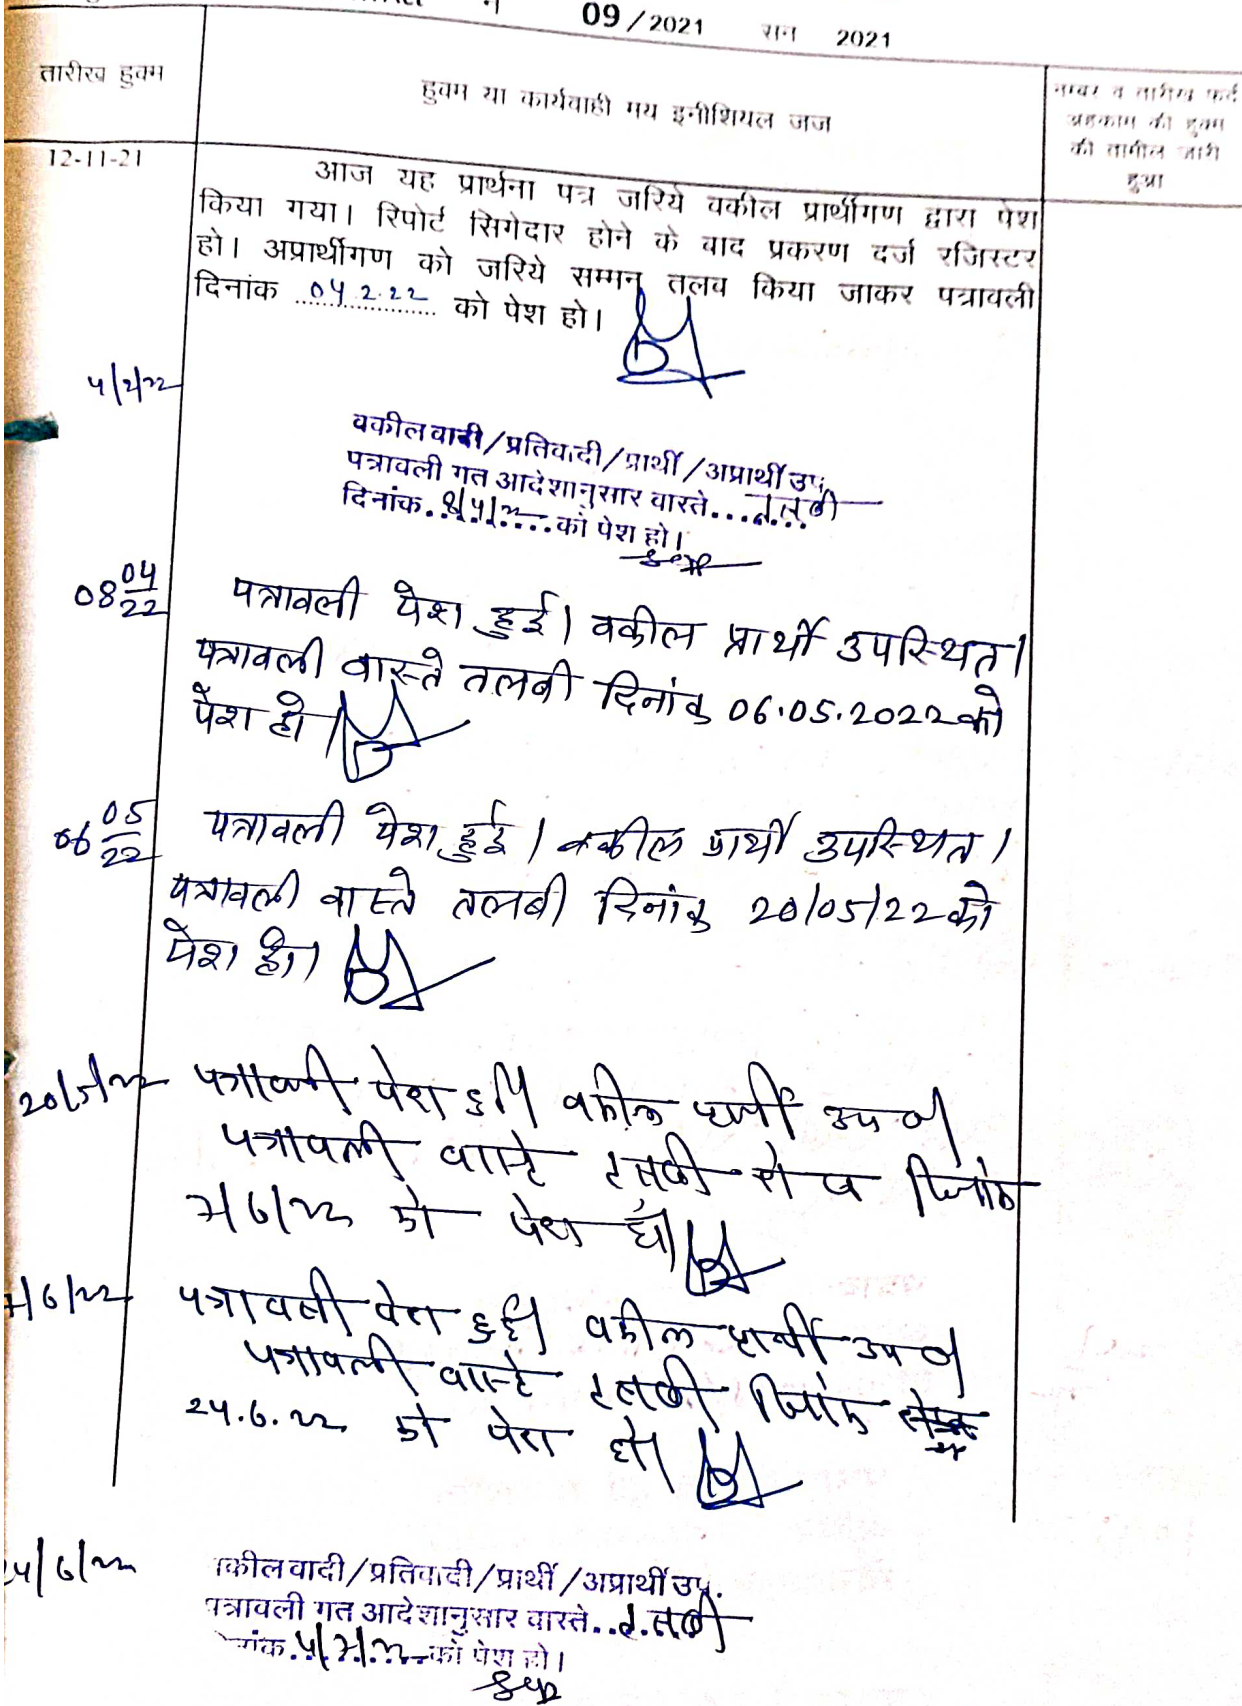 09/2021 सन 2021
तारीख हुक्म
हुक्म या कार्यवाही मय इनीशियल जज
नम्बर व तारीख फर्द
अहकाम की हुक्म
की तामील जारी
हुआ
12-11-21
आज यह प्रार्थना पत्र जरिये वकील प्रार्थीगण द्वारा पेश
किया गया। रिपोर्ट सिगेदार होने के बाद प्रकरण दर्ज रजिस्टर
हो। अप्रार्थीगण को जरिये सम्मन तलब किया जाकर पत्रावली
दिनांक 04.2.22 को पेश हो।
4/2/22
वकील वादी/प्रतिवादी/प्रार्थी/अप्रार्थी उप.
पत्रावली गत आदेशानुसार वास्ते...तलबी
दिनांक. 8/4/22 को पेश हो।
08 04/22 पत्रावली पेश हुई। वकील प्रार्थी उपस्थित।
पत्रावली वास्ते तलबी दिनांक 06.05.2022 को
पेश हो।
06 05/22 पत्रावली पेश हुई। वकील प्रार्थी उपस्थित।
पत्रावली वास्ते तलबी दिनांक 20/05/22 को
पेश हो।
20/5/22 पत्रावली पेश हुई। वकील प्रार्थी उप०।
पत्रावली वास्ते तलबी दिनांक
7/6/22 को पेश हो।
7/6/22 पत्रावली पेश हुई। वकील प्रार्थी उप०।
पत्रावली वास्ते तलबी दिनांक
24.6.22 को पेश हो।
24/6/22 वकील वादी/प्रतिवादी/प्रार्थी/अप्रार्थी उप.
पत्रावली गत आदेशानुसार वास्ते..तलबी
दिनांक. 4/7/22 को पेश हो।